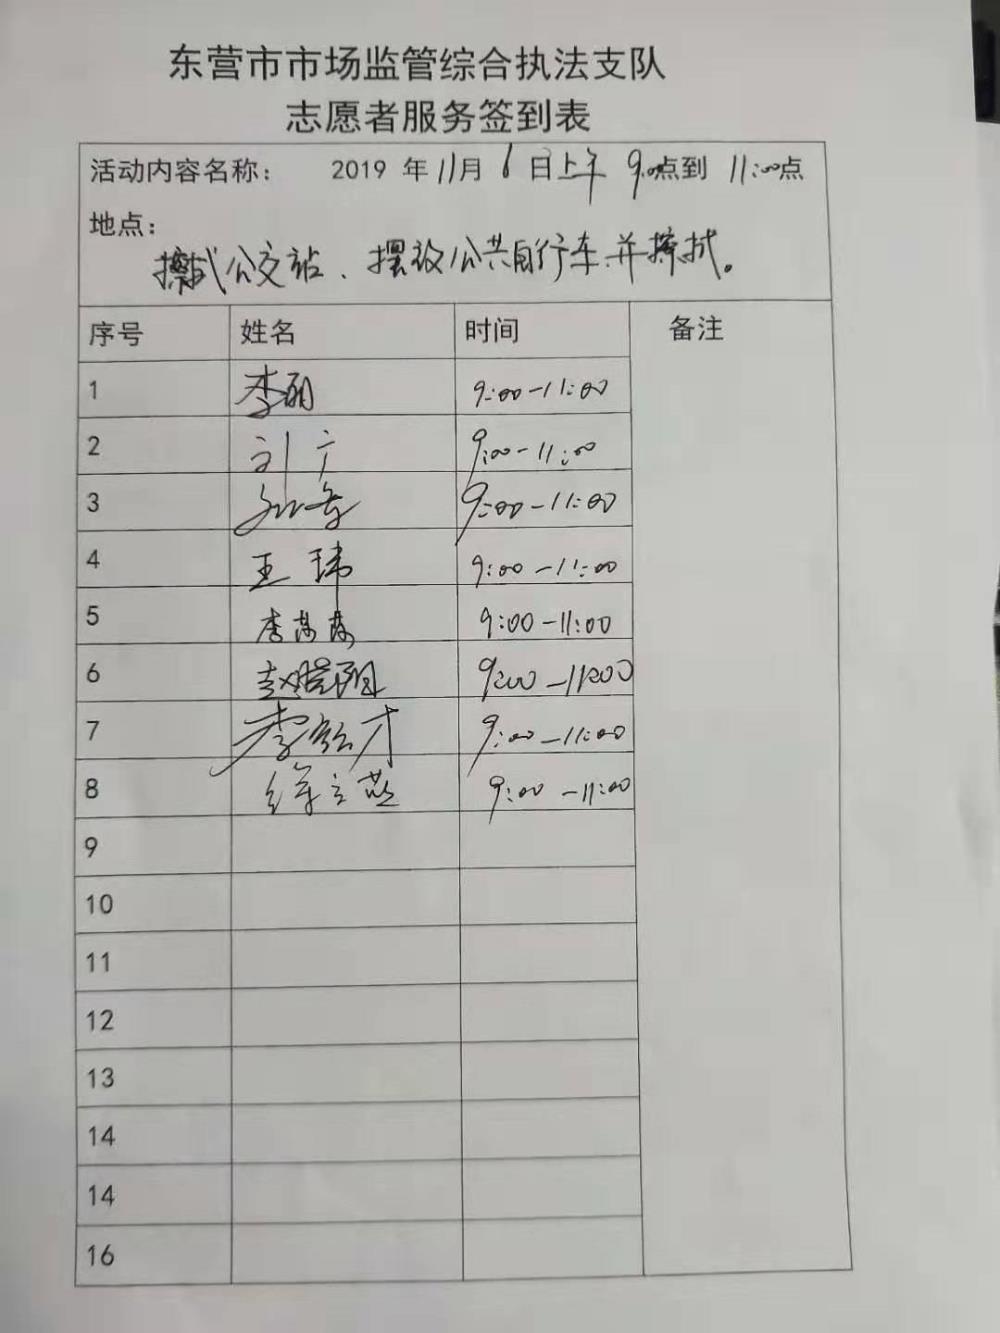 东营市市场监管综合执法支队
志愿者服务签到表
活动内容名称： 2019 年 11月 6 日上午 9:00点到 11:00点
地点：
擦拭公交站、摆放公共自行车并擦拭。
序号 姓名 时间 备注
1 李丽 9:00-11:00
2 刘广 9:00-11:00
3 9:00-11:00
4 王玮 9:00-11:00
5 李芳芳 9:00-11:00
6 赵 9:00-11:00
7 李 才 9:00-11:00
8 徐立燕 9:00-11:00
9
10
11
12
13
14
14
16